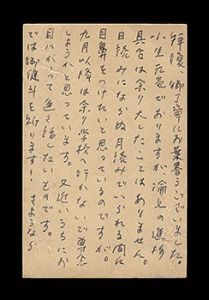 拝復、御丁寧にお葉書ありがとうございました。
小生元気でありますが論文の進捗
具合は余りしたことはありません。
日読みにならぬ月読みでいられる間に
目鼻をつけたいと思っているのですが。
九月以降は余り学校へ行かないで専念
しようかと思っています。又近いうちにお
目にかかって色々話したいものです。
では御健斗を祈ります! さようなら